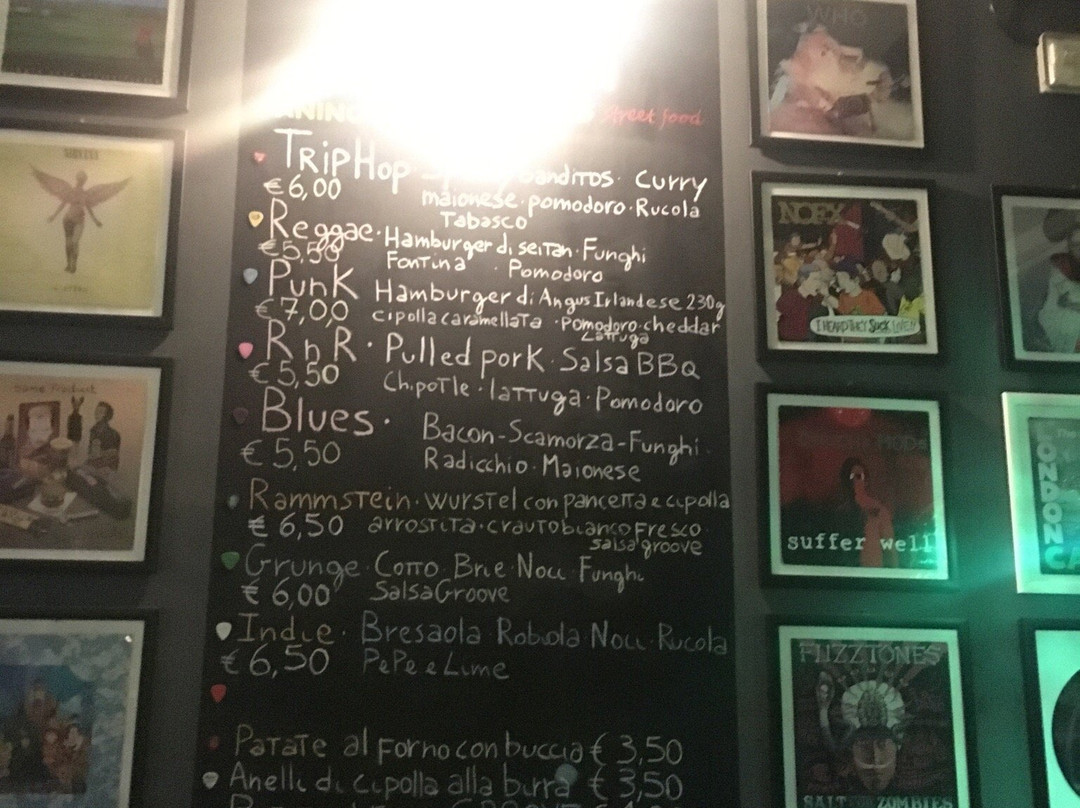 street food
TripHop banditos. Curry
€6,00 maionese. pomodoro. Rucola
Tabasco
Reggae. Hamburger di seitan. Funghi
€5,50 Fontina. Pomodoro
Punk Hamburger di Angus Irlandese 230g
€7,00 cipolla caramellata. pomodoro. cheddar
Lattuga
R n R. Pulled pork. Salsa BBQ
€5,50 Chipotle. lattuga. Pomodoro
Blues. Bacon-Scamorza-Funghi.
€5,50 Radicchio. Maionese
Rammstein. wurstel con pancetta e cipolla
€6,50 arrostita. crauto bianco fresco.
salsa groove
Grunge. Cotto. Brie. Noci. Funghi
€6,00 Salsa Groove
Indie. Bresaola Robiola Noci. Rucola
€6,50 Pepe e Lime
Patate al forno con buccia € 3,50
Anelli di cipolla alla birra € 3,50
WHO
NOFX
I HEARD THEY SUCK LIVE!!
suffer well
LONDON
FUZZTONES
SALT ZOMBIES